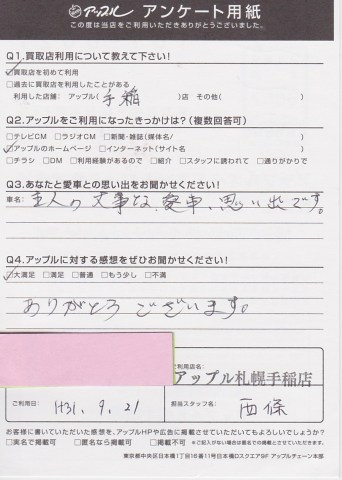 アップル アンケート用紙
この度は当店をご利用いただきありがとうございました。
Q1.買取店利用について教えて下さい!
☑買取店を初めて利用
□過去に買取店を利用したことがある
利用した店舗: アップル( 手稲 )店 その他( )
Q2.アップルをご利用になったきっかけは?(複数回答可)
□テレビCM □ラジオCM □新聞・雑誌(媒体名/ )
☑アップルのホームページ □インターネット(サイト名 )
□チラシ □DM □利用経験があるので □紹介 □スタッフに誘われて □通りがかりで
Q3.あなたと愛車との思い出をお聞かせください!
車名: 主人の大事な、愛車、思い出です。
Q4.アップルに対する感想をぜひお聞かせください!
☑大満足 □満足 □普通 □もう少し □不満
ありがとうございます。
ご利用店名:
アップル札幌手稲店
ご利用日: H31. 9. 21
担当スタッフ名: 西條
お客様に書いていただいた感想を、アップルHPや広告に掲載させていただいてもよろしいでしょうか?
□実名で掲載可 □匿名なら掲載可 □掲載不可 ※ご記入がない場合は匿名での掲載とさせていただきます。
東京都中央区日本橋1丁目16番11号日本橋Dスクエア9F アップルチェーン本部